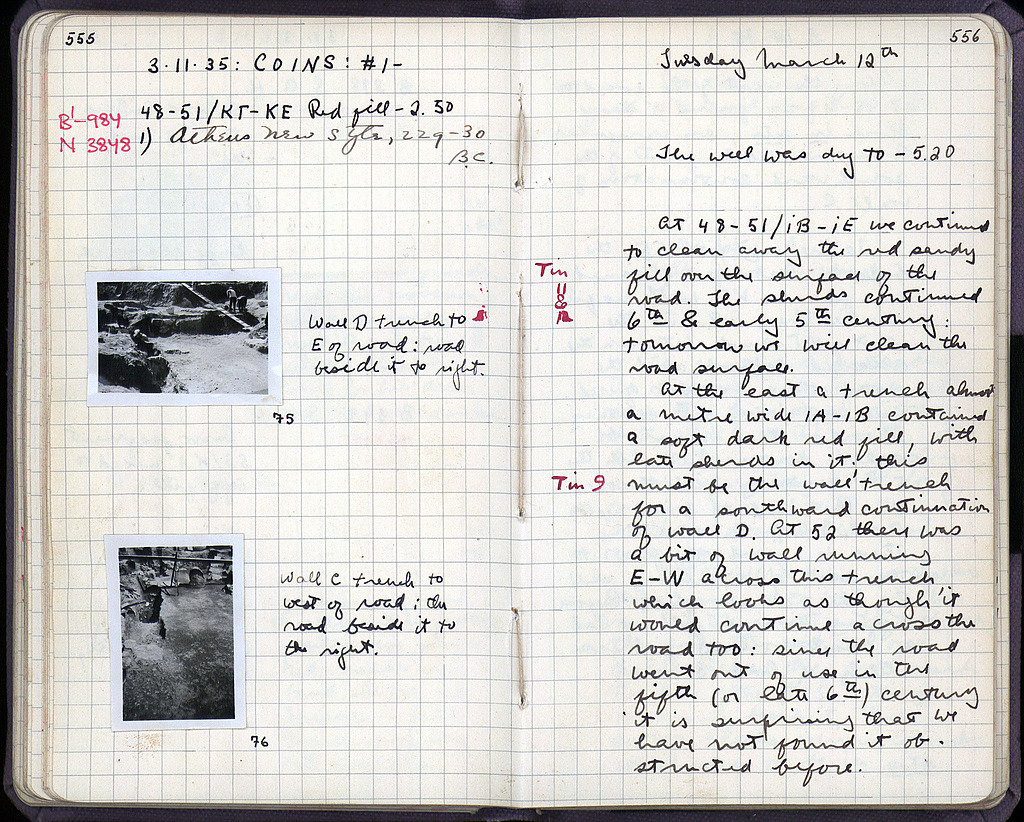 555
3·11·35: COINS: #1-
B'-984
N 3848
48-51/KΓ-KE Red fill -2.50
1) Athens New Style, 229-30
B.C.
Wall D trench to
E of road: road
beside it to right.
75
Wall C trench to
west of road; the
road beside it to
the right.
76
556
Tuesday March 12th
The well was dry to -5.20
At 48-51/iB-iE we continued
to clean away the red sandy
fill over the surface of the
road. The sherds continued
6th & early 5th century:
tomorrow we will clean the
road surface.
Tin
11
8
At the east a trench almost
a metre wide 1A-1B contained
a soft dark red fill, with
late sherds in it: this
Tin 9
must be the wall trench
for a southward continuation
of wall D. At 52 there was
a bit of wall running
E-W across this trench,
which looks as though it
would continue across the
road too: since the road
went out of use in the
fifth (or late 6th) century
it is surprising that we
have not found it ob-
structed before.